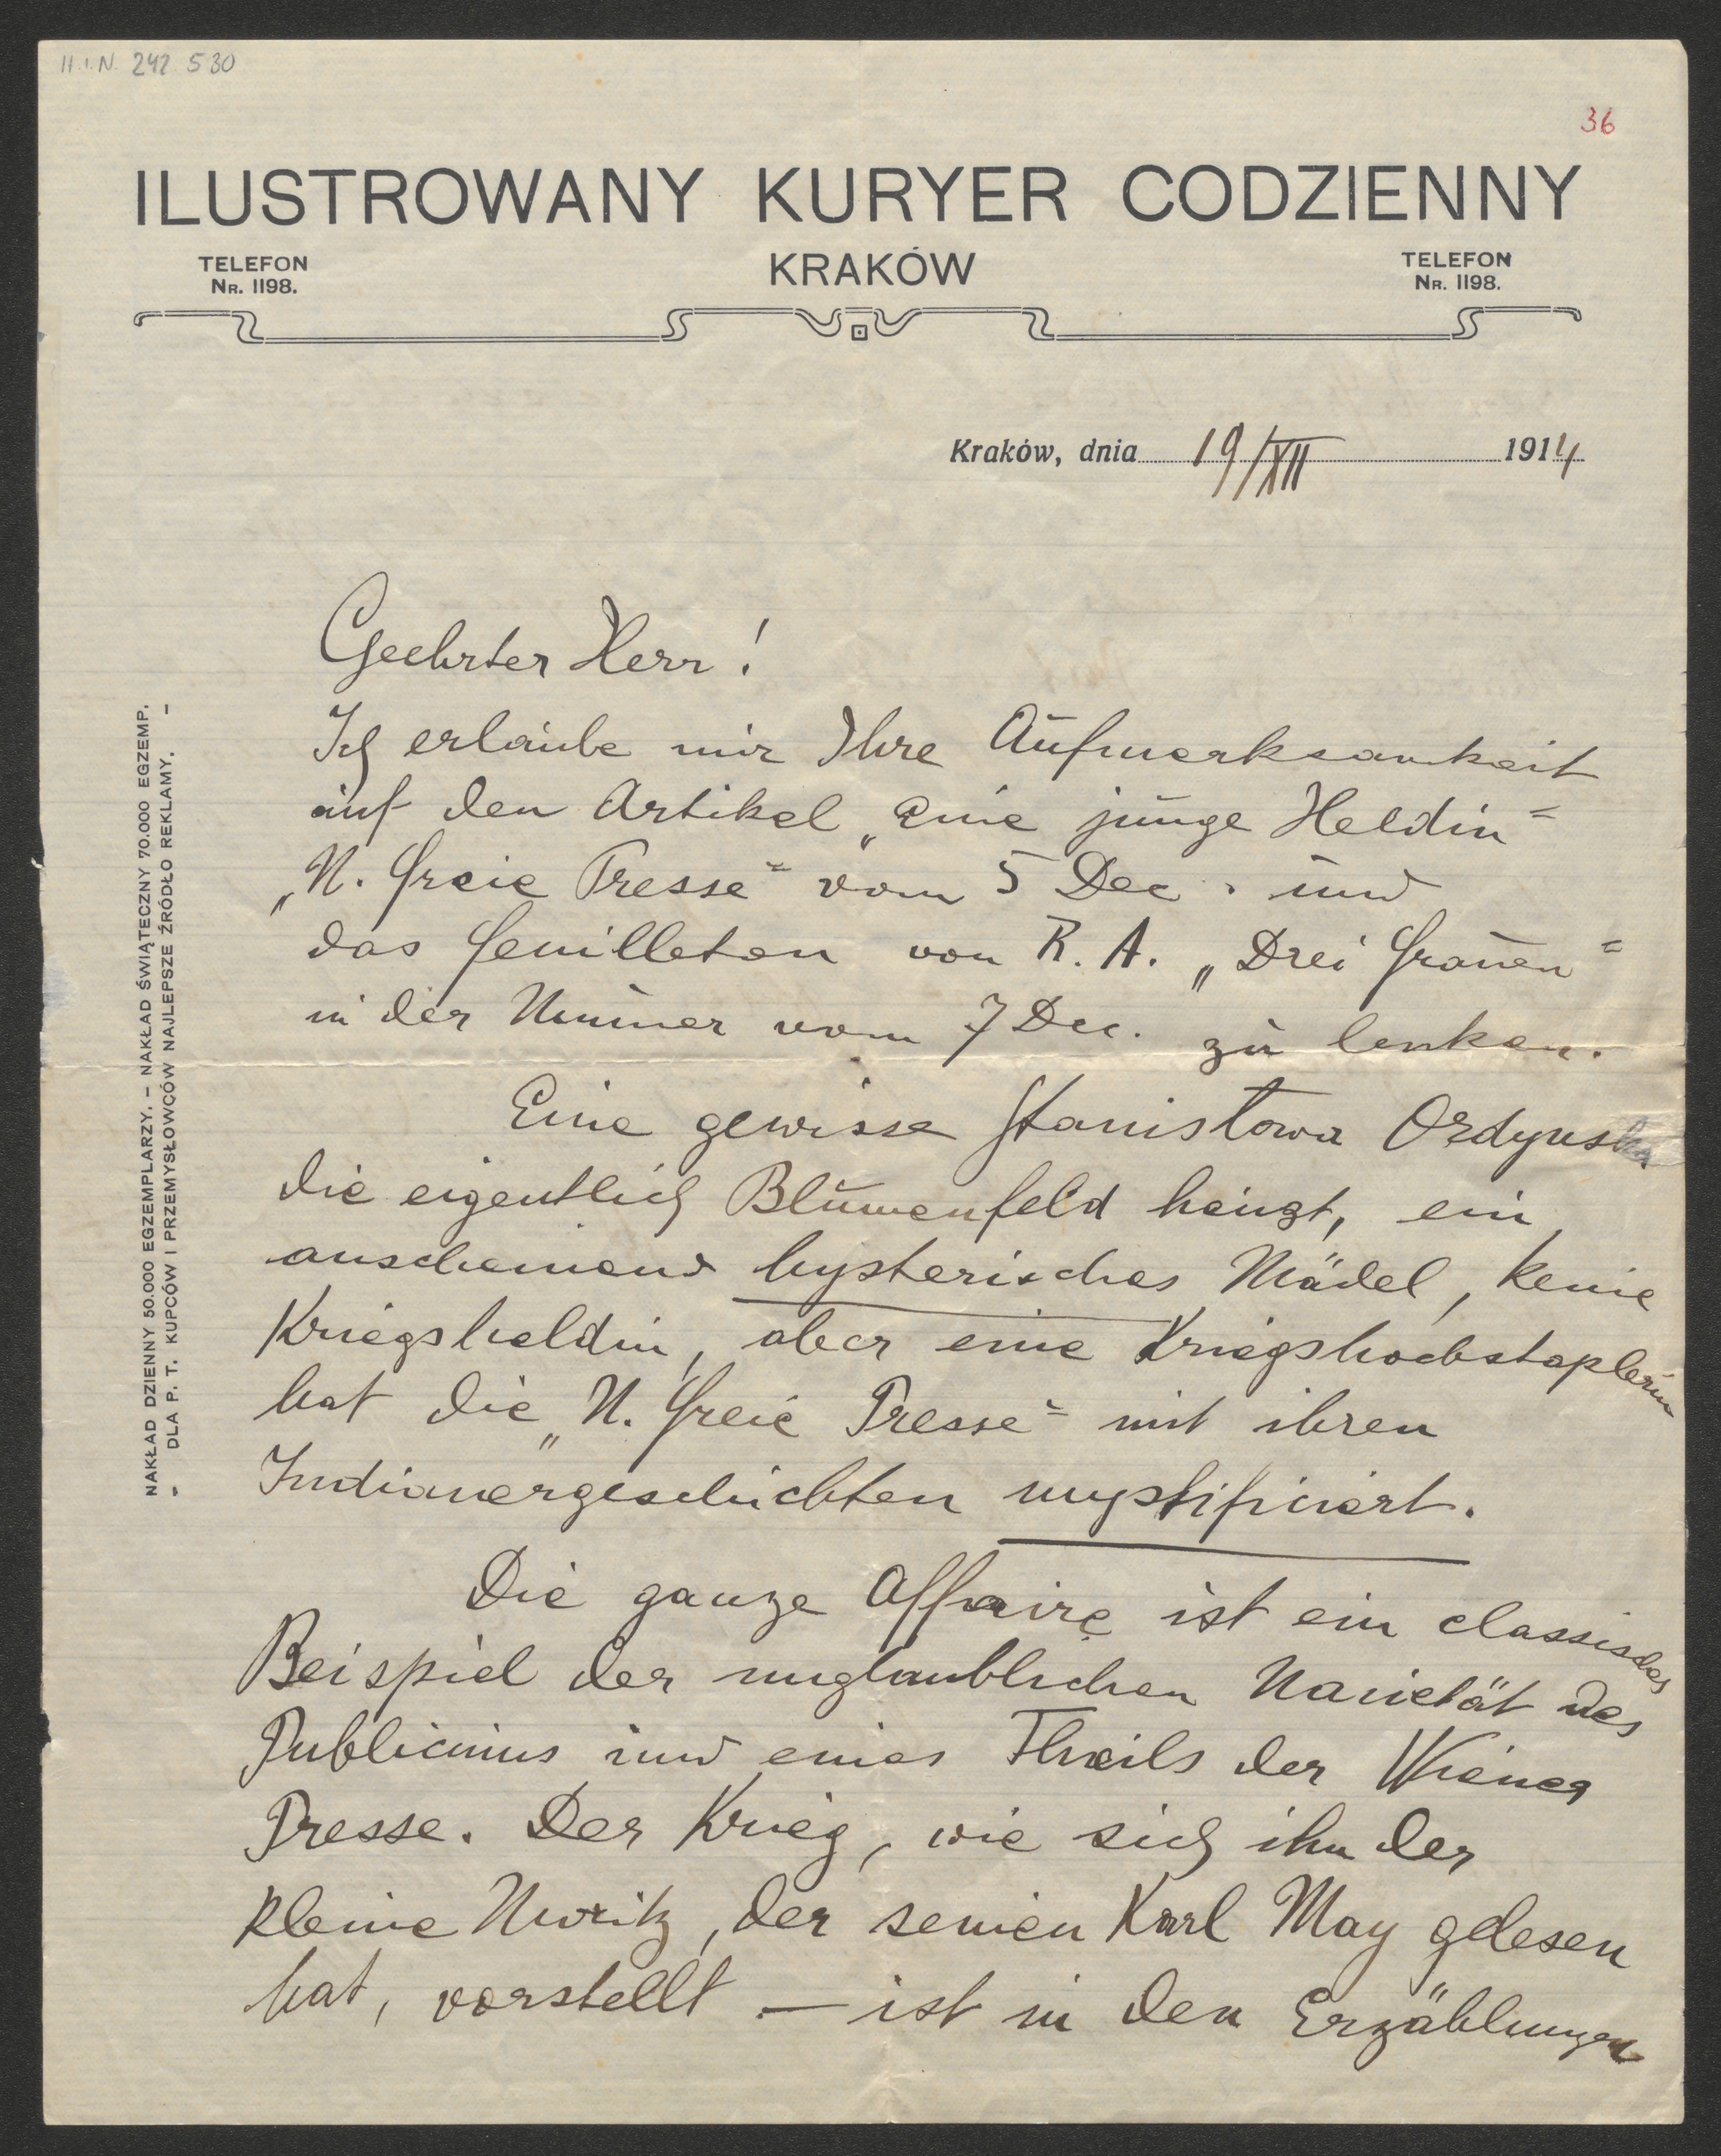 H.I.N. 242530
36
ILUSTROWANY KURYER CODZIENNY
TELEFON
NR. 1198.
KRAKÓW
TELEFON
NR. 1198.
Kraków, dnia 19/XII 1914
NAKŁAD DZIENNY 50.000 EGZEMPLARZY. – NAKŁAD ŚWIĄTECZNY 70.000 EGZEMP.
– DLA P. T. KUPCÓW I PRZEMYSŁOWCÓW NAJLEPSZE ŹRÓDŁO REKLAMY. –
Geehrter Herr!
Ich erlaube mir Ihre Aufmerksamkeit
auf den Artikel „Eine junge Heldin“
„N. Freie Presse“ vom 5 Dec. und
das Feuilleton von R. A. „Drei Frauen“
in der Nummer vom 7 Dec. zu lenken.
Eine gewisse Stanisłowa Ordynska
die eigentlich Blumenfeld heigzt, ein
anscheinend hysterisches Mädel, keine
Kriegsheldin, aber eine Kriegshochstaplerin
hat die „N. Freie Presse“ mit ihren
Indianergeschichten mystificiert.
Die ganze Affaire ist ein classisches
Beispiel der unglaublichen Naivetät des
Publicums und eines Theils der Wiener
Presse. Der Krieg, wie sich ihn der
kleine Moritz, der seinen Karl May gelesen
hat, vorstellt — ist in den Erzählungen